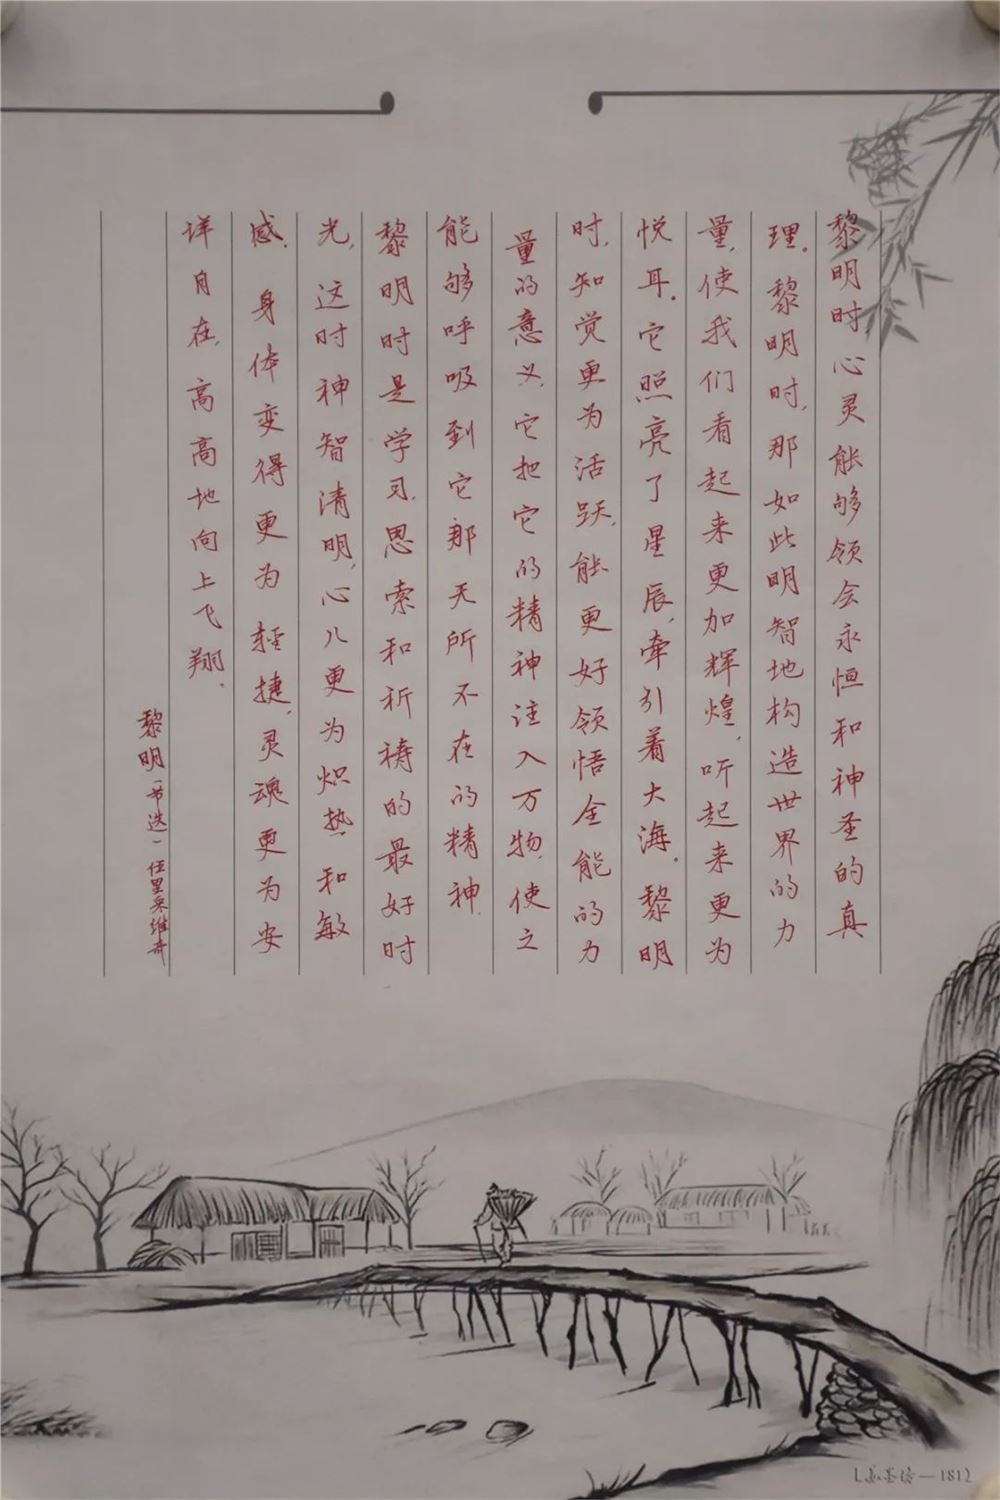 黎明时心灵能够领会永恒和神圣的真
理。黎明时,那如此明智地构造世界的力
量,使我们看起来更加辉煌,听起来更为
悦耳。它照亮了星辰,牵引着大海。黎明
时,知觉更为活跃,能更好领悟全能的力
量的意义,它把它的精神注入万物,使之
能够呼吸到它那无所不在的精神.
黎明时是学习,思索和祈祷的最好时
光,这时神智清明,心儿更为炽热和敏
感.身体变得更为轻捷,灵魂更为安
详自在,高高地向上飞翔.
黎明(节选)伍里采维奇
墨坊—1812